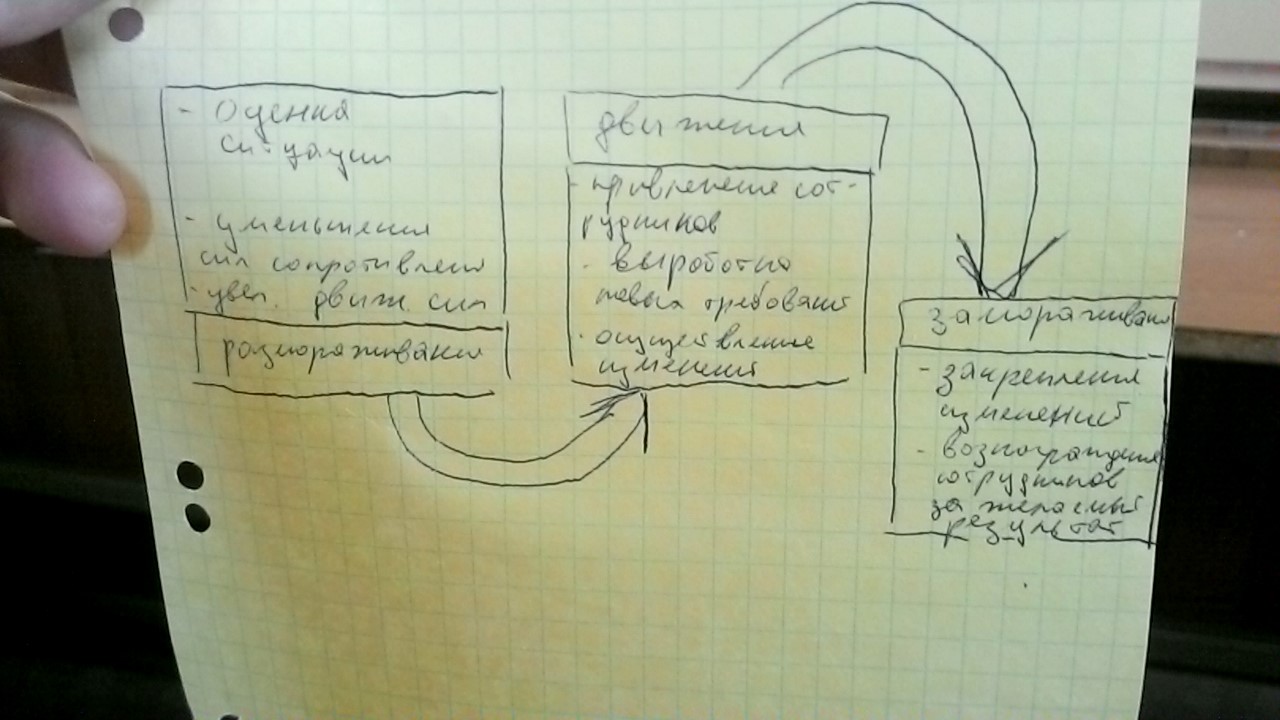 - Оценка
ситуации
- уменьшения
сил сопротивлени
- увел. движ. сил
размораживания
движения
- привлечение сот-
рудников
- выработка
новых требований
- осуществление
изменений
замораживани
- закрепления
изменений
- вознограждения
сотрудников
за желаемый
результат